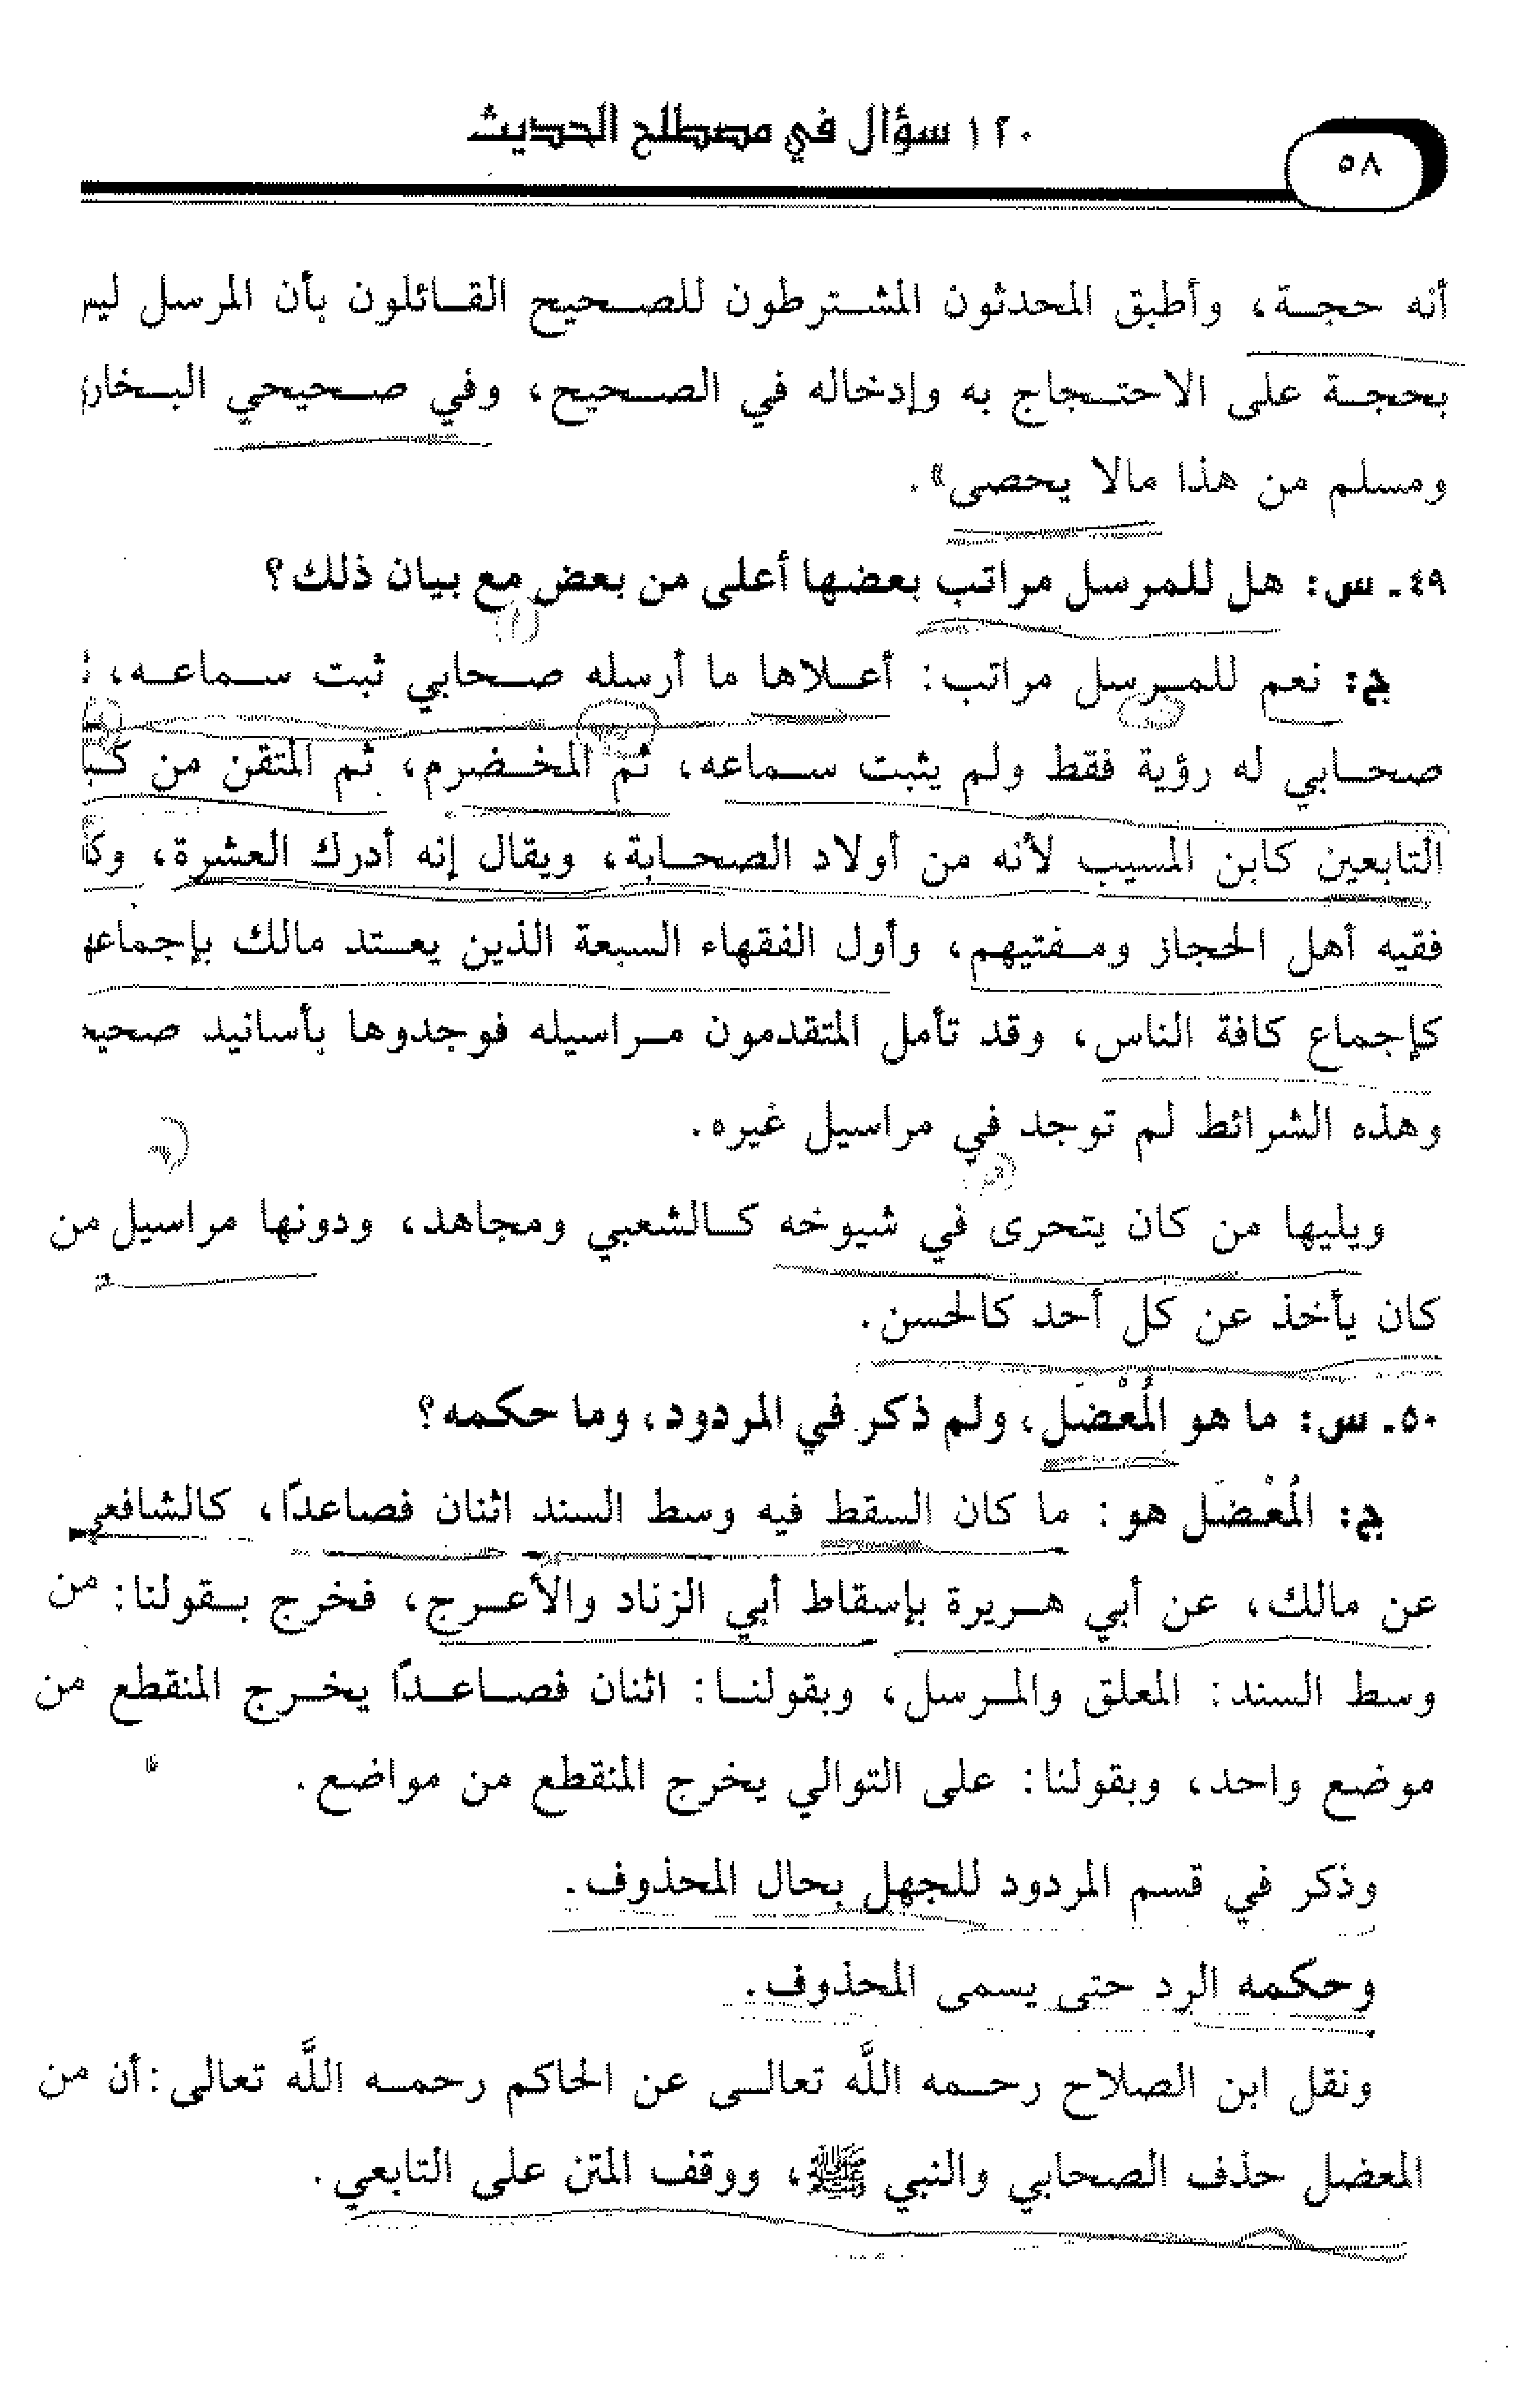 ١٢٠ سؤال في مصطلح الحديث
٥٨
أنه حجة، وأطبق المحدثون المشترطون للصحيح القائلون بأن المرسل ليس
بحجة على الاحتجاج به وإدخاله في الصحيح، وفي صحيحي البخاري
ومسلم من هذا مالا يحصى».
٤٩ ـ س: هل للمرسل مراتب بعضها أعلى من بعض مع بيان ذلك؟
ج: نعم للمرسل مراتب: أعلاها ما أرسله صحابي ثبت سماعه،
صحابي له رؤية فقط ولم يثبت سماعه، ثم المخضرم، ثم المتقن من
التابعين كابن المسيب لأنه من أولاد الصحابة، ويقال إنه أدرك العشرة،
فقيه أهل الحجاز ومفتيهم، وأول الفقهاء السبعة الذين يعتد مالك
كإجماع كافة الناس، وقد تأمل المتقدمون مراسيله فوجدوها بأسانيد
وهذه الشرائط لم توجد في مراسيل غيره.
ويليها من كان يتحرى في شيوخه كالشعبي ومجاهد، ودونها مراسيل من
كان يأخذ عن كل أحد كالحسن.
٥٠ ـ س: ما هو المُعْضَل، ولم ذكر في المردود، وما حكمه؟
ج: المُعْضَل هو: ما كان السقط فيه وسط السند اثنان فصاعدًا، كالشافعي
عن مالك، عن أبي هريرة بإسقاط أبي الزناد والأعرج، فخرج بقولنا: من
وسط السند: المعلق والمرسل، وبقولنا: اثنان فصاعدًا يخرج المنقطع من
موضع واحد، وبقولنا: على التوالي يخرج المنقطع من مواضع.
وذكر في قسم المردود للجهل بحال المحذوف.
وحكمه الرد حتى يسمى المحذوف.
ونقل ابن الصلاح رحمه اللَّه تعالى عن الحاكم رحمه اللَّه تعالى: أن من
المعضل حذف الصحابي والنبي ﷺ، ووقف المتن على التابعي.